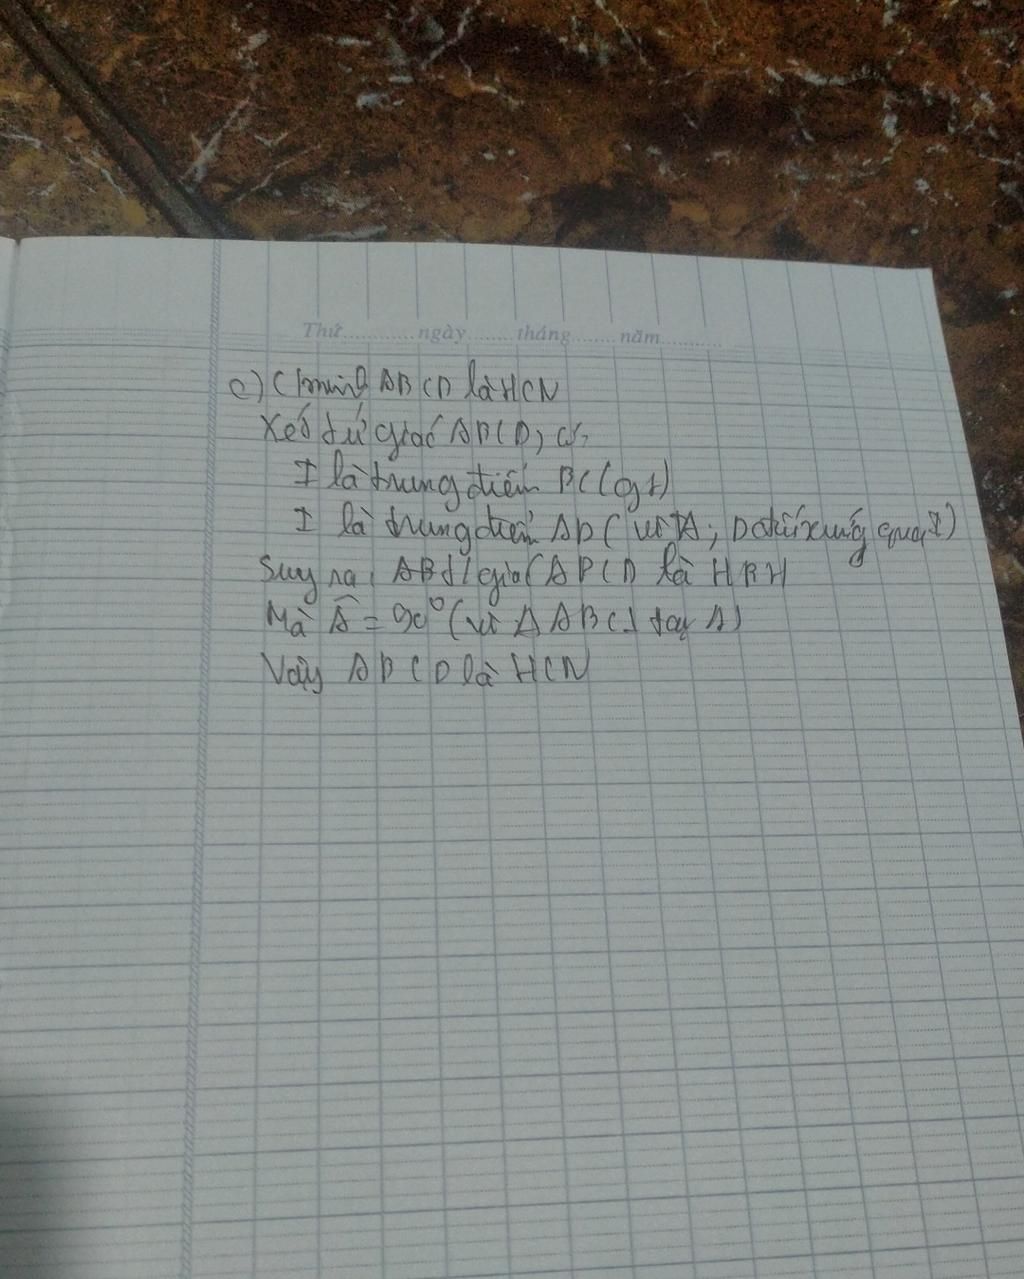 Thứ.............ngày.........tháng.........năm............
c) Cminh ABCD là HCN
Xét tứ giác ABCD, có:
I là trung điểm BC (gt)
I là trung điểm AD (vì A; D đối xứng qua I)
Suy ra: tứ giác ABCD là HBH
Mà Â = 90° (vì Δ ABC ⊥ tại A)
Vậy ABCD là HCN